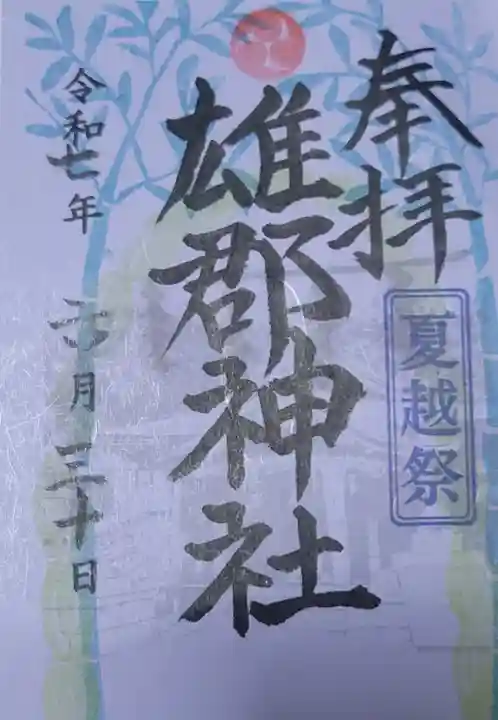 奉拝
夏越祭
雄郡神社
令和七年 六月 三十日